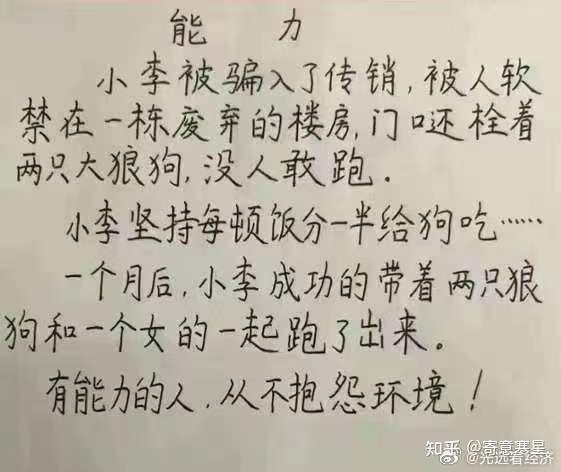 能 力
小李被骗入了传销,被人软
禁在一栋废弃的楼房,门口还栓着
两只大狼狗,没人敢跑.
小李坚持每顿饭分一半给狗吃……
一个月后,小李成功的带着两只狼
狗和一个女的一起跑了出来。
有能力的人,从不抱怨环境!
知乎 @寄意寒星
@光远看经济